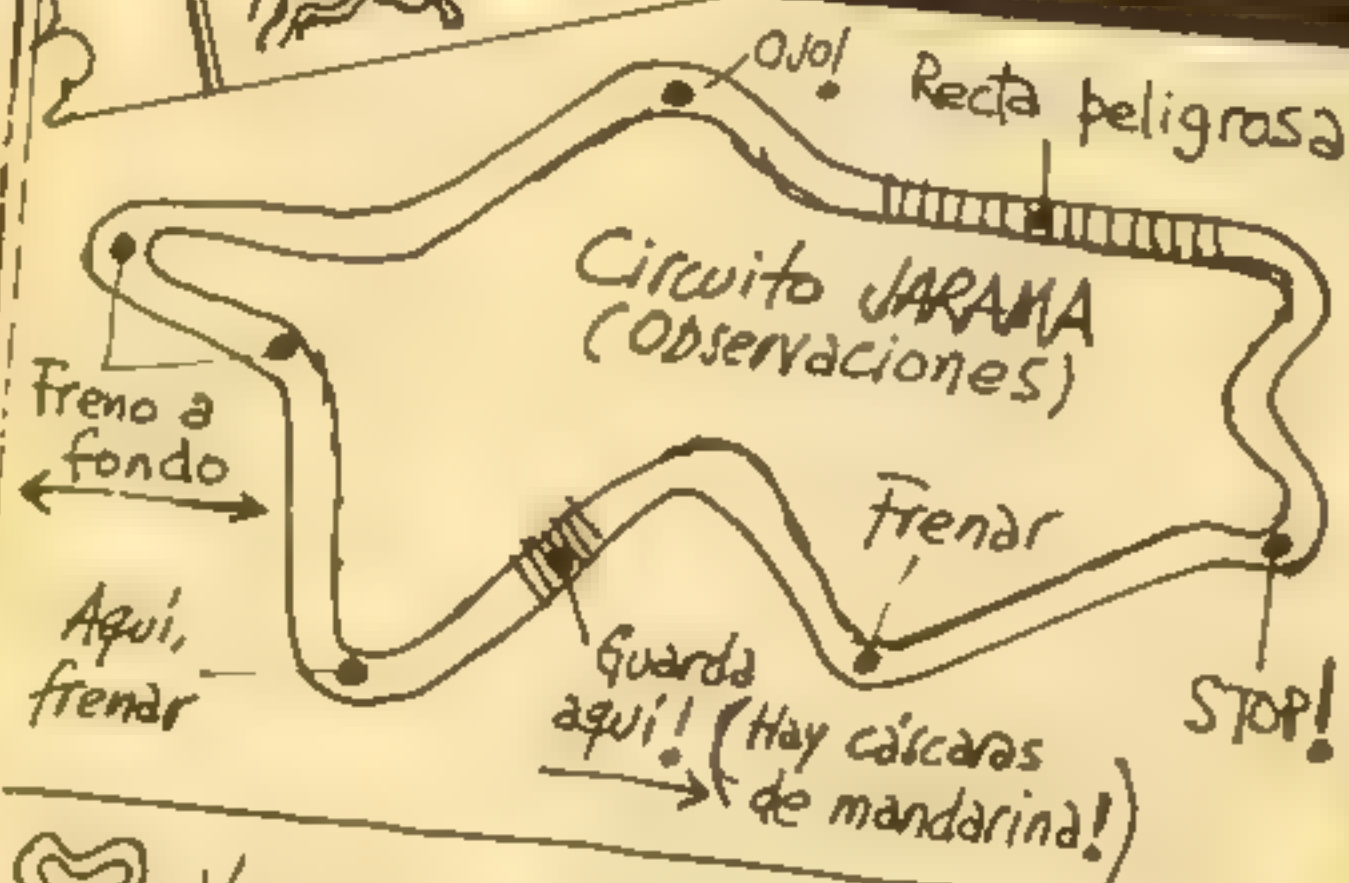 Ojo!
Recta peligrosa
Circuito JARAMA
(Observaciones)
Freno a
fondo
Frenar
Aquí,
frenar
Guarda
aquí! (Hay cáscaras
de mandarina!)
STOP!